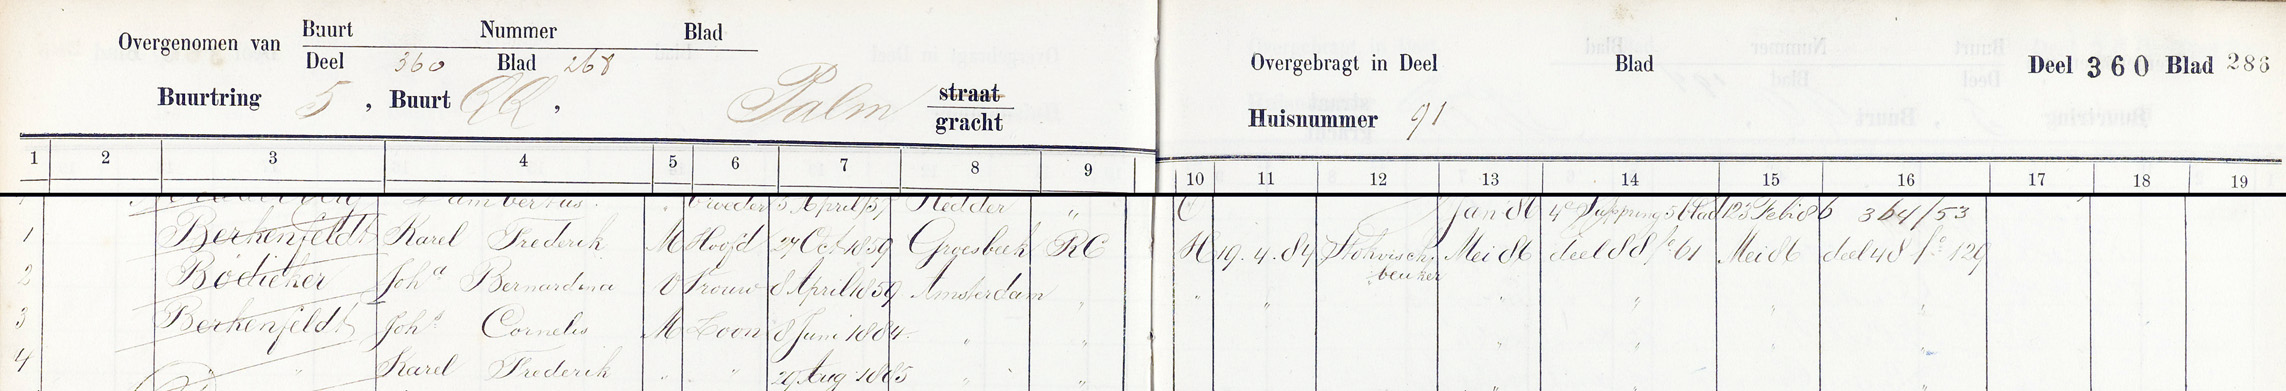 Overgenomen van Buurt Nummer Blad
Deel 360 Blad 268
Buurtring 5, Buurt QQ, Palm straat gracht
Overgebragt in Deel Blad Deel 360 Blad 286
Huisnummer 91
1 2 3 4 5 6 7 8 9 10 11 12 13 14 15 16 17 18 19
Lambertus. " broeder 3 April 57 Hedder " C Jan 86 23 Feb 86 364/53
1 Berkenfeldt Karel Frederik M Hoofd 27 Oct 1859 Groesbeek RC H 19.4.84 Stokvisch beuker Mei 86 deel 88 fo 61 Mei 86 deel 48 fo 129
2 Bödicker Joha Bernardina V Vrouw 8 April 1859 Amsterdam " " " " " " "
3 Berkenfeldt Johs Cornelis M Zoon 8 Juni 1884 " " " " " "
4 " " Karel Frederik " " 29 Aug 1885 " " " " " "